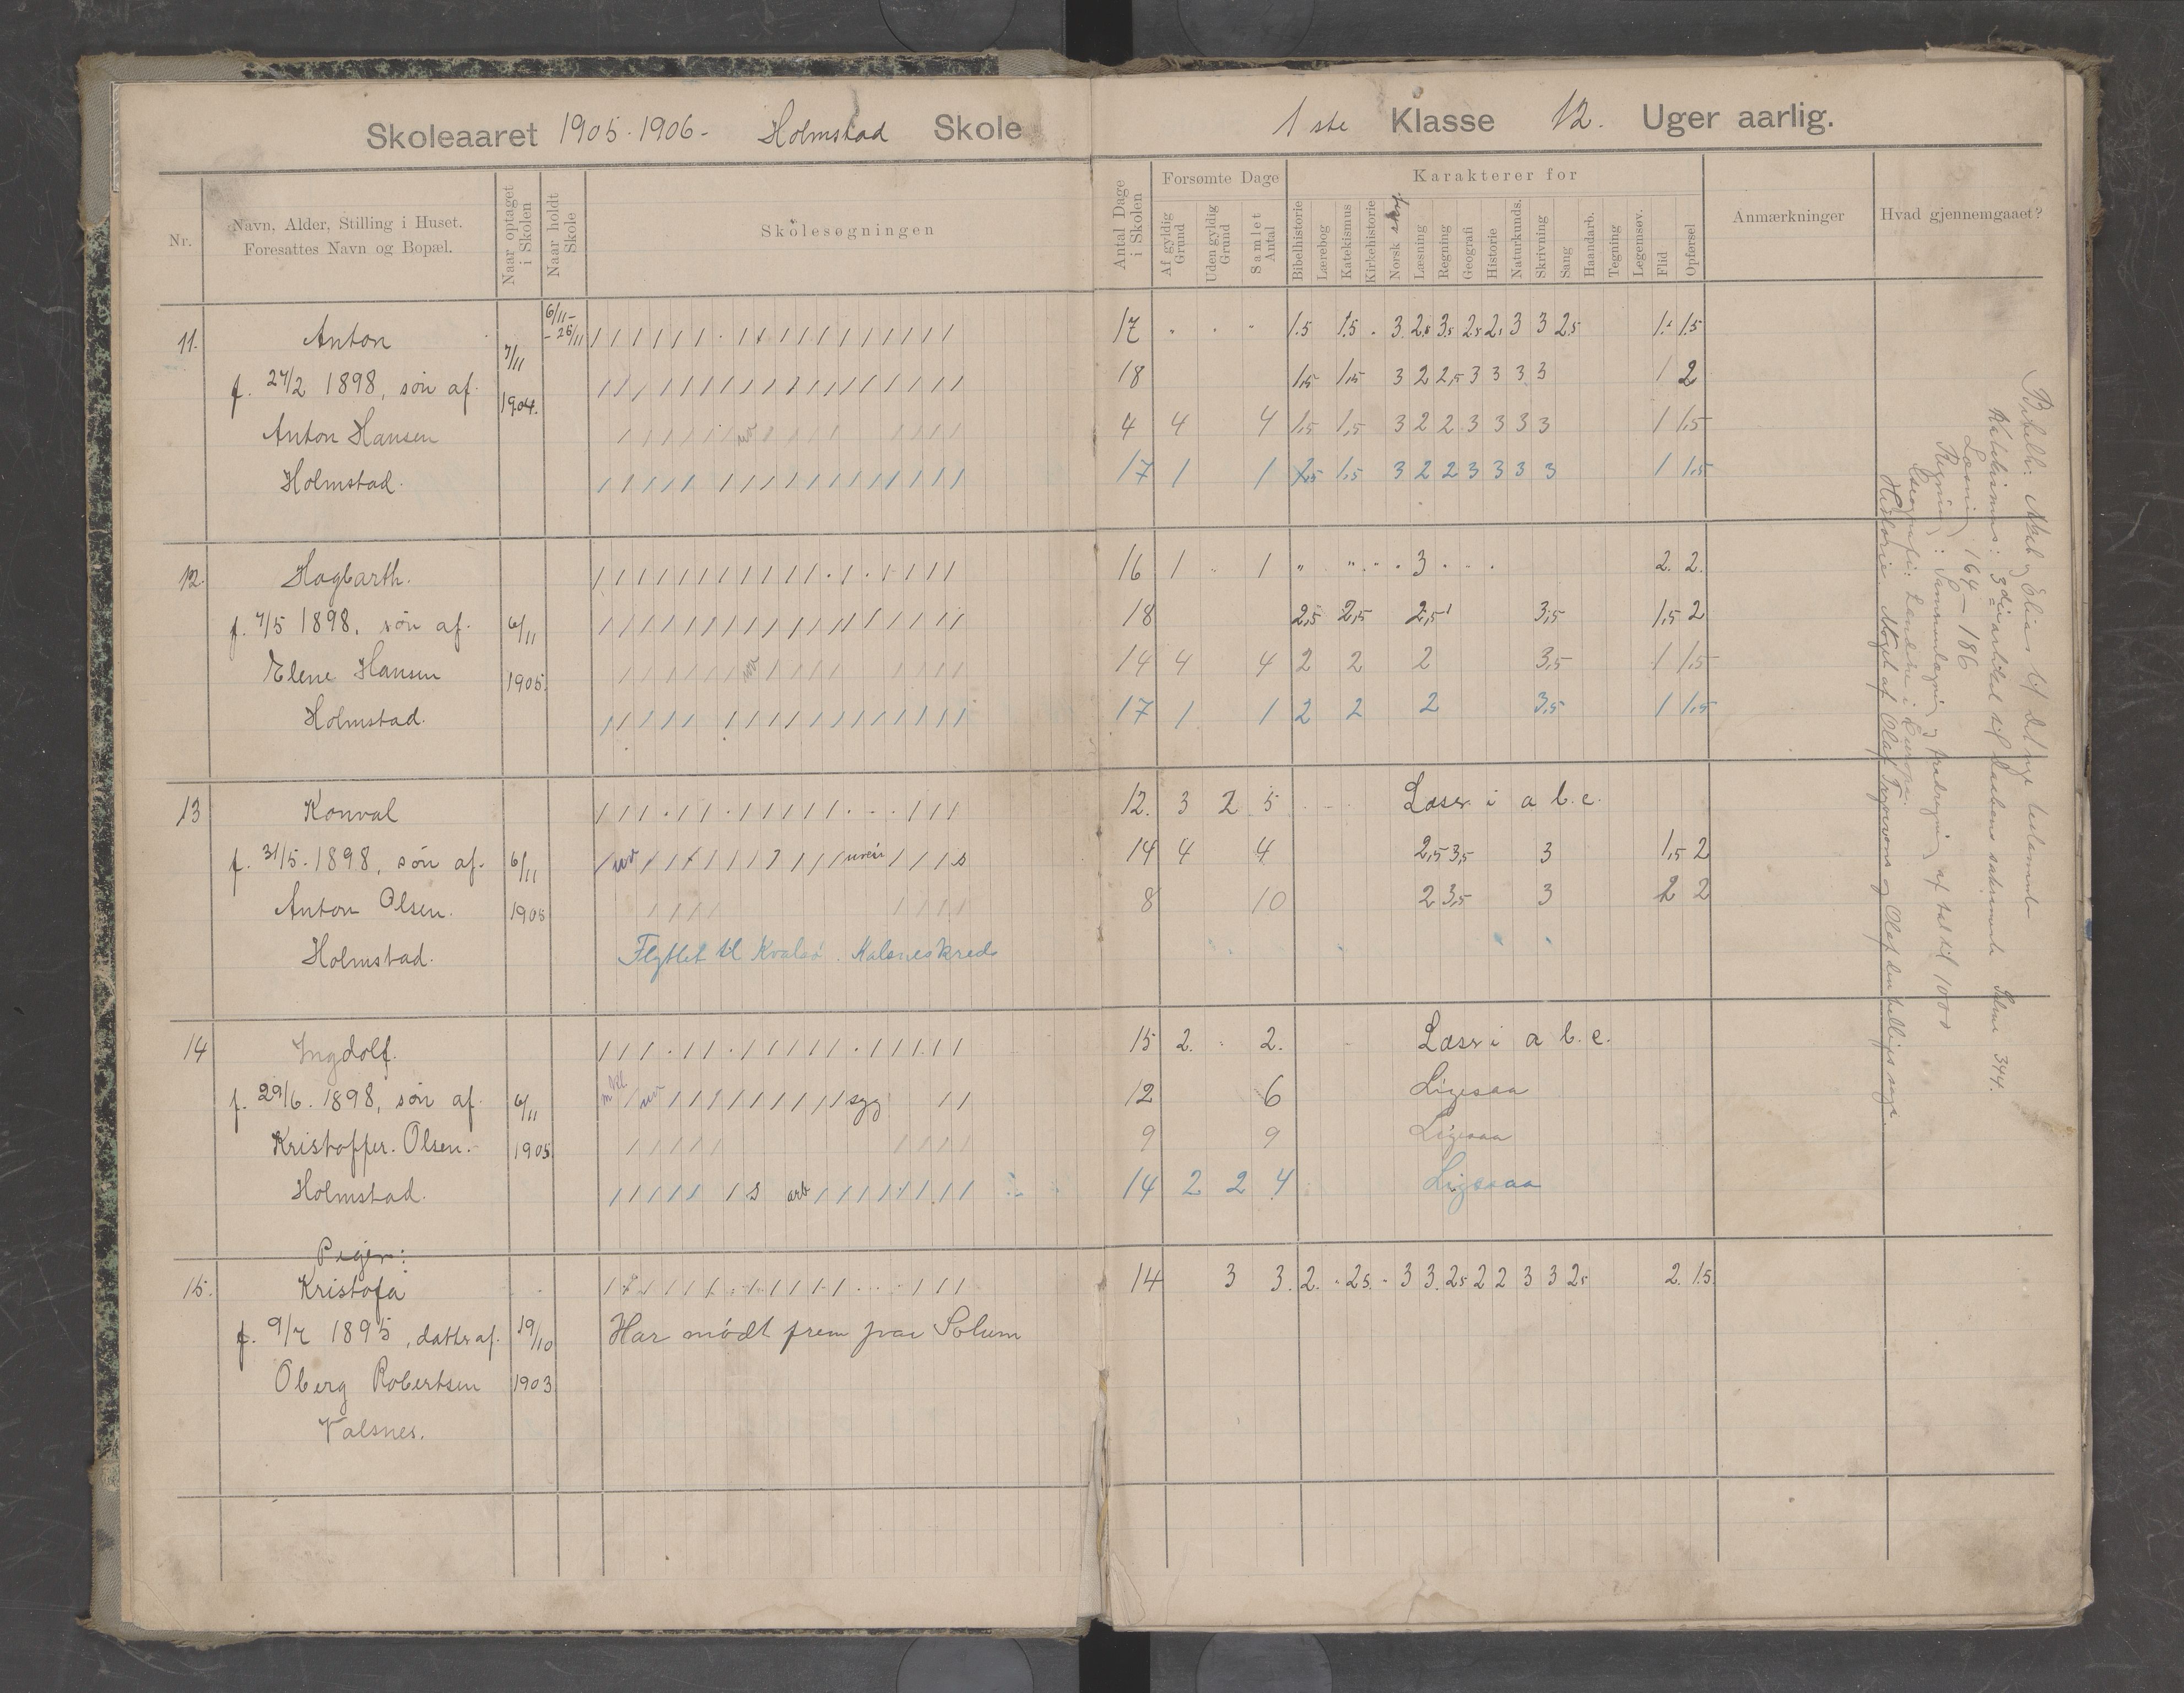 Skoleaaret 1905-1906- Holmstad Skole
1ste Klasse 12. Uger aarlig.
Nr.
Navn, Alder, Stilling i Huset.
Foresattes Navn og Bopæl.
Naar optaget i Skolen
Naar holdt Skole
Skolesøgningen
Antal Dage i Skolen
Forsømte Dage
Af gyldig Grund
Uden gyldig Grund
Samlet Antal
Karakterer for
Bibelhistorie
Lærebog
Katekismus
Kirkehistorie
Norsk
Læsning
Regning
Geografi
Historie
Naturkunds.
Skrivning
Sang
Haandarb.
Tegning
Legemsøv.
Flid
Opførsel
Anmærkninger
Hvad gjennemgaaet?
11. Anton 6/11- - 25/11 17 1.5 1.5 3 2.5 3.5 2.5 2.5 3 3 2.5 1.5
f. 27/2 1898, søn af. 7/11 18 1,5 1,5 3 2 2,5 3 3 3 3 1 2
Anton Hansen 1904. uv 4 4 4 1,5 1,5 3 2 2 3 3 3 3 1 1,5
Holmstad. 17 1 1 1,5 1,5 3 2 2 3 3 3 3 1 1,5
12. Hagbarth. 16 1 1 3 2. 2.
f. 7/5 1898, søn af. 6/11 18 2,5 2,5 2,5 3,5 1,5 2
Elene Hansen 1905. uv 14 4 4 2 2 2 3,5 1 1,5
Holmstad. 17 1 1 2 2 2 3,5 1 1,5
13 Konval 12. 3 2 5 Læser i a b.c.
f. 31/5. 1898, søn af. 6/11 uv uveir s 14 4 4 2,5 3,5 3 1,5 2
Anton Olsen. 1905 8 10 2 3,5 3 2 2
Holmstad. Flyttet til Kvalsø. Kalsneskreds
14 Ingdolf. 15 2. 2. Læser i a b.c.
f. 29/6. 1898, søn af. 6/11 uv syg 12 6 Ligesaa
Kristoffer. Olsen. 1905 9 9 Ligesaa
Holmstad. s arb 14 2 2 4 Ligesaa
Piger:
15. Kristofa 14 3 3. 2. 2.5. 3 3. 2.5 2 2 3 3 2.5 2. 1.5
f. 9/7 1895, datter af. 19/10 Har mødt frem paa Solum
Oberg Robertsen 1903
Valsnes.
Bibelh: Abel og Elias til det nye testamente
Katekismus: 3die artikel til daabens sakramente Salme 344.
Læsning 164-186
Regning: Sammenlægning og fradragning af tal til 1000
Geografi: Landene i Europa.
Historie. Noget af Olaf Trygvesons og Olaf den helliges saga.